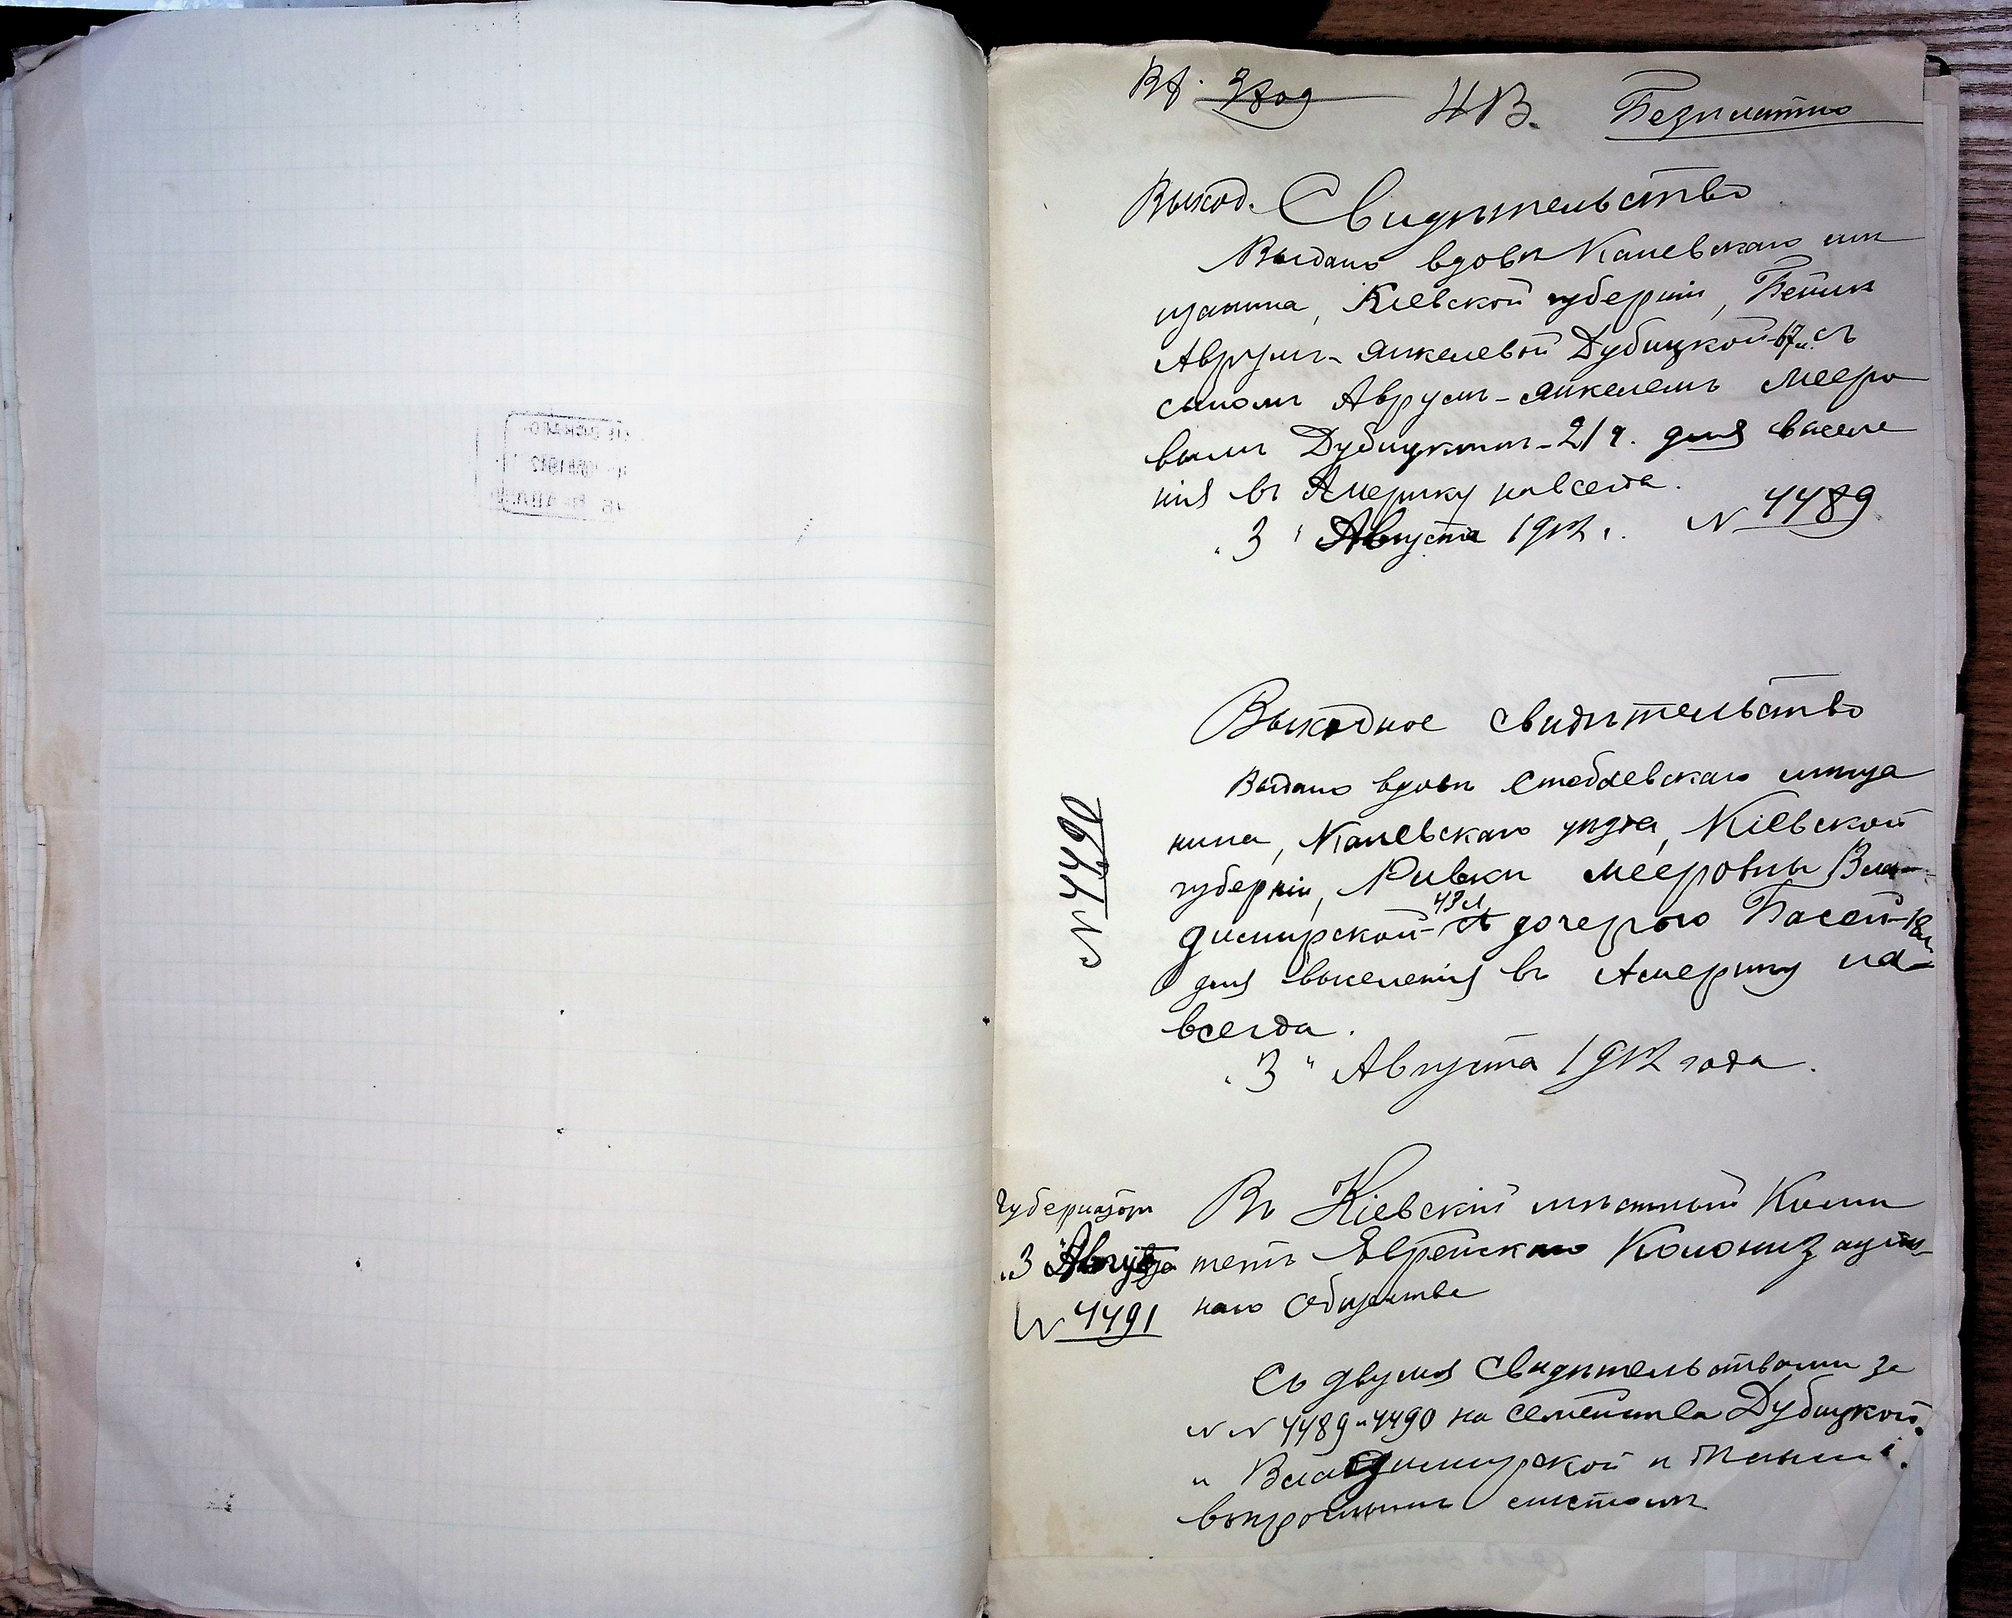 4 В. Безплатно
Выход. Свидѣтельство
Выдано вдовѣ Каневскаго мѣ
щанина, Кіевской губерніи, Бейлѣ
Аврумъ-Янкелевой Дубицкой-67 л. съ
сыномъ Аврумъ-Янкелемъ Мееро
вымъ Дубицкимъ-21 г. для выселе
нія въ Америку навсегда.
"3" Августа 1912 г. № 4489
Выходное свидѣтельство
Выдано вдовѣ Стеблевскаго мѣща
нина, Каневскаго уѣзда, Кіевской
губерніи, Ривкѣ Мееровны Вла-
димирской-43 л съ дочерью Басей-18 л.
для выселенія въ Америку на-
всегда.
"3" Августа 1912 года.
№ 4490
Губернаторъ
"3" Августа
№ 4491
Въ Кіевскій мѣстный Коми
тетъ Еврейскаго Колонизаціон-
наго Общества
Съ двумя свидѣтельствами за
№№ 4489 и 4490 на семейства Дубицкой
и Владимирской и
вопроснымъ листомъ